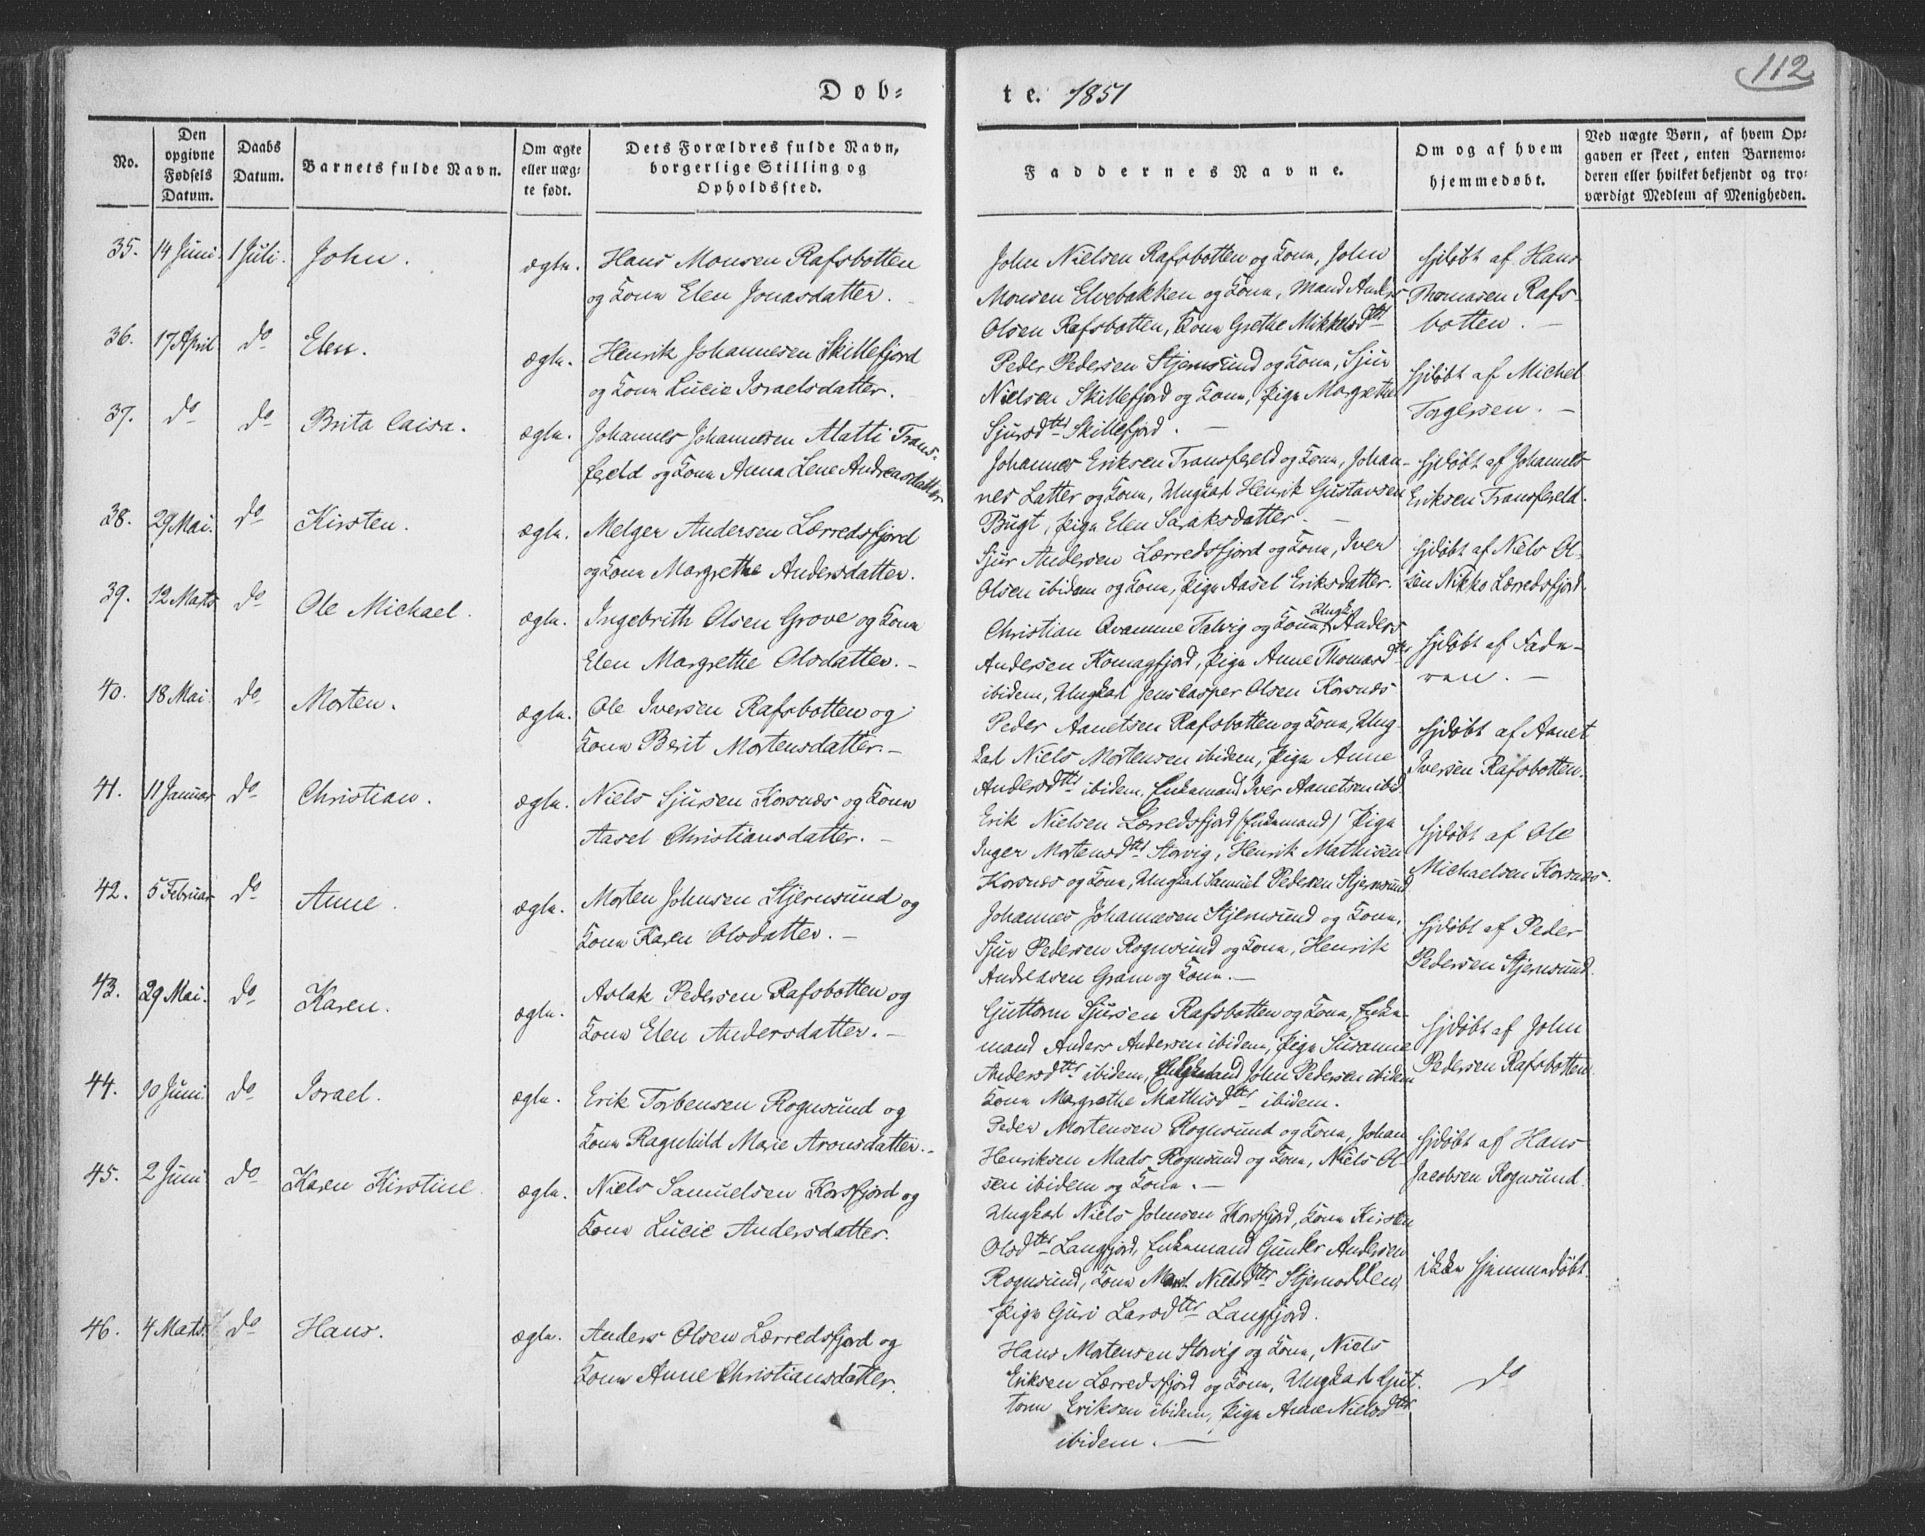 112
Døb-
te. 1851
No.
Den opgivne Fødsels Datum.
Daabs Datum.
Barnets fulde Navn.
Om ægte eller uæg-te født.
Dets Forældres fulde Navn, borgerlige Stilling og Opholdssted.
Faddernes Navne.
Om og af hvem hjemmedøbt.
Ved uægte Børn, af hvem Op-gaven er skeet, enten Barnemo-deren eller hvilket bekjendt og tro-værdigt Medlem af Menigheden.
35. 14 Juni. 1 Juli. John. ægte. Hans Monsen Rafsbotten
og Kone Elen Jonasdatter.
John Nielsen Rafsbotten og Kone, John
Monsen Elvebakken og Kone, Mand Anders
Olsen Rafsbotten, Kone Grethe Mikkelsdtr
hjdøbt af Hans
Thomasen Rafs-
botten. —
36. 17 April do Elen. ægte. Henrik Johannesen Skillefjord
og Kone Lucie Israelsdatter.
Peder Pedersen Stjernsund og Kone, Sjur
Nielsen Skillefjord og Kone, Pige Margrethe
Sjursdtr Skillefjord. —
hjdøbt af Michel
Torgersen. —
37. do do Brita Caisa. ægte. Johannes Johannesen Matti Trans-
fjeld og Kone Anna Lene Andreasdatter.
Johannes Eriksen Transfjeld og Kone, Johan-
nes Latter og Kone, Ungkarl Henrik Gustavsen
Bugt, Pige Elen Saraksdatter. —
hjdøbt af Johannes
Eriksen Transfjeld.
38. 29 Mai. do Kirsten. ægte. Melger Andersen Lerredsfjord
og Kone Margrethe Andersdatter.
Sjur Andersen Lerredsfjord og Kone, Iver
Olsen ibidem og Kone, Pige Aasel Eriksdatter.
hjdøbt af Niels Ol-
sen Nikko Lerredsfjord.
39. 12 Marts do Ole Michael. ægte. Ingebrith Olsen Grove og Kone
Elen Margrethe Olsdatter. —
Christian Qvamme Talvig og Kone, Ungk. Anders
Andersen Komagfjord, Pige Anne Thomasdtr
ibidem, Ungkarl Jens Casper Olsen Korsnes
hjdøbt af Fade-
ren. —
40. 18 Mai. do Morten. ægte. Ole Iversen Rafsbotten og
Kone Berit Mortensdatter. —
Peder Aanetsen Rafsbotten og Kone, Ung-
karl Niels Mortensen ibidem, Pige Anne
Andersdtr ibidem, Enkemand Iver Aanetsen ibid.
hjdøbt af Aanet
Iversen Rafsbotten.
41. 11 Januar do Christian. ægte. Niels Sjursen Korsnes og Kone
Aasel Christiansdatter. —
Erik Nielsen Lerredsfjord (Enkemand) Pige
Inger Mortensdtr Storvig, Henrik Mathisen
Korsnes og Kone, Ungkarl Samuel Pedersen Stjernsund
hjdøbt af Ole
Michaelsen Korsnes.
42. 5 Februar do Anne. ægte. Morten Johnsen Stjernsund og
Kone Karen Olsdatter. —
Johannes Johannesen Stjernsund og Kone,
Sjur Pedersen Rognsund og Kone, Henrik
Andreasen Gram og Kone. —
hjdøbt af Peder
Pedersen Stjernsund.
43. 29 Mai. do Karen. ægte. Aslak Pedersen Rafsbotten og
Kone Elen Andersdatter. —
Guttorm Sjursen Rafsbotten og Kone, Enke-
mand Anders Andersen ibidem, Pige Susanne
Andersdtr ibidem, John Pedersen ibidem
Kone Margrethe Mathisdtr ibidem.
hjdøbt af John
Pedersen Rafsbotten.
44. 10 Juni. do Israel. ægte. Erik Torbensen Rognsund og
Kone Ragnhild Marie Aronsdatter. —
Peder Mortensen Rognsund og Kone, Johan
Henriksen Mads Rognsund og Kone, Niels Ol-
sen ibidem og Kone. —
hjdøbt af Hans
Jacobsen Rognsund.
45. 2 Juni do Karen Kirstine. ægte. Niels Samuelsen Korsfjord og
Kone Lucie Andersdatter.
Ungkarl Niels Johnsen Korsfjord, Kone Kirsten
Olsdtr Langfjord, Enkemand Gunder Andersen
Rognsund, Kone Marit Nielsdtr Stjernodden,
Pige Guri Larsdtr Langfjord.
ikke hjemmedøbt.
46. 4 Marts. do Hans. ægte. Anders Olsen Lerredsfjord og
Kone Anne Christiansdatter.
Hans Mortensen Storvig og Kone, Niels
Eriksen Lerredsfjord og Kone, Ungkarl Gut-
torm Eriksen ibidem, Pige Anne Nielsdtr
ibidem. —
do